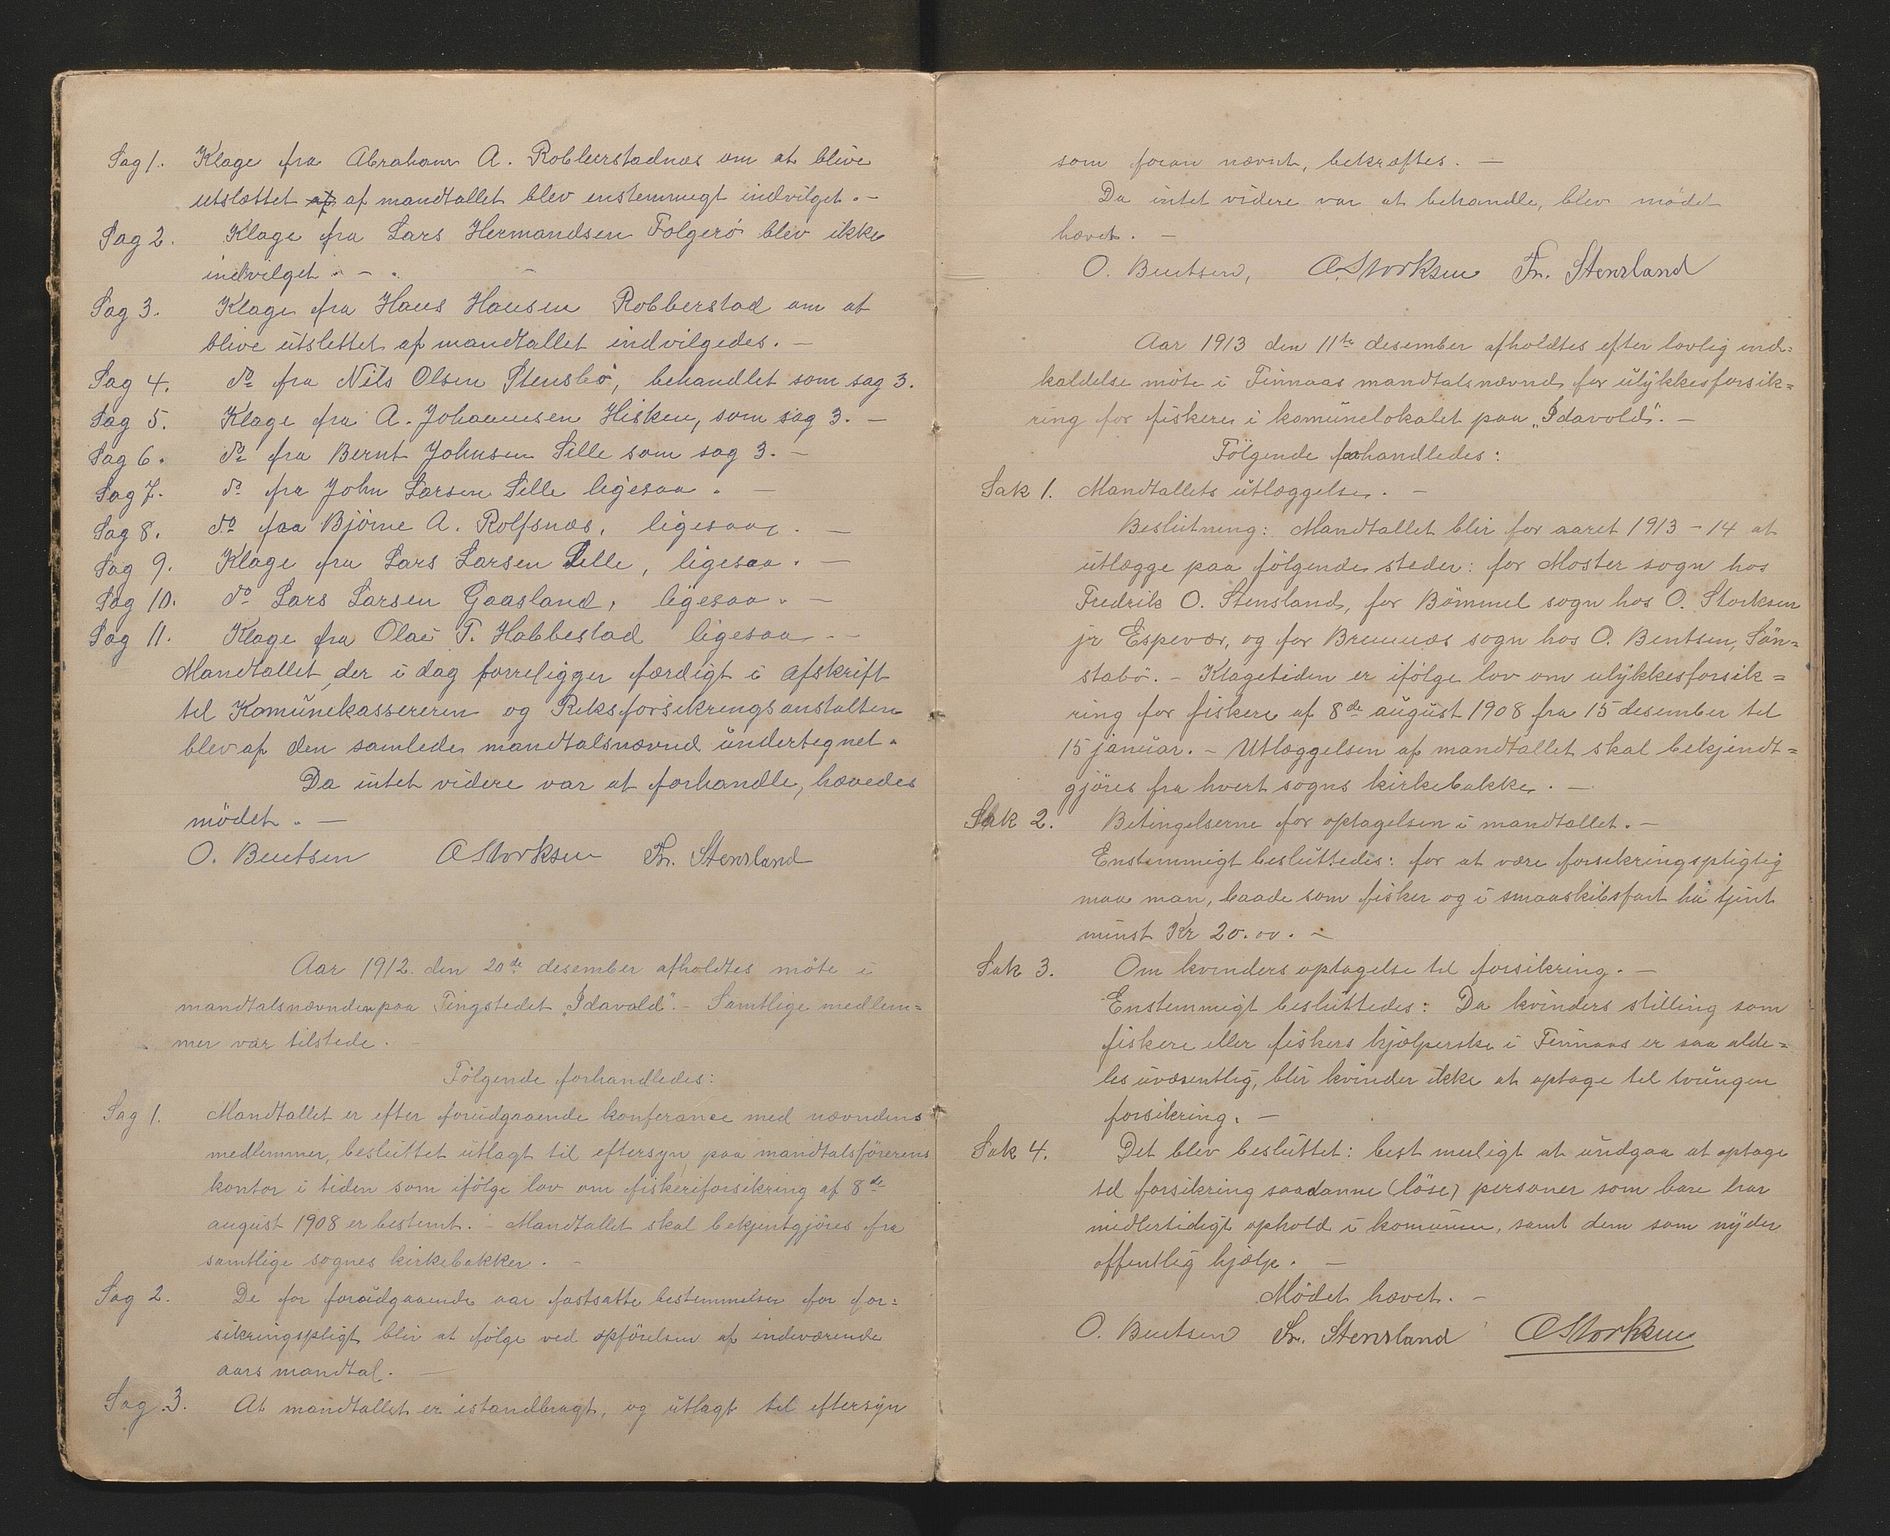 Sag 1. Klage fra Abraham A. Robberstadnes om at blive
utslættet af af mandtallet blev enstemmigt indvilget. -
Sag 2. Klage fra Lars Hermandsen Folgerö blev ikke
indvilget. - -
Sag 3. Klage fra Hans Hansen Robberstad om at
blive utslettet af mandtallet indvilgedes. -
Sag 4. do fra Nils Olsen Stensbö, behandlet som sag 3.
Sag 5. Klage fra A. Johannesen Hisken, som sag 3. -
Sag 6. do fra Bernt Johnsen Lille som sag 3. -
Sag 7. do fra John Larsen Lille ligesaa. -
Sag 8. do fra Bjørne A. Rolfsnæs, ligesaa. -
Sag 9. Klage fra Lars Larsen Lille, ligesaa. -
Sag 10. do Lars Larsen Gaasland, ligesaa. -
Sag 11. Klage fra Olai T. Habbestad ligesaa -
Mandtallet der i dag forreligger færdigt i afskrift
til Komünekassereren og Riksforsikringsanstalten
blev af den samlede mandtalsnævnd undertegnet.
Da intet videre var at forhandle, hævedes
mödet. -
O. Bentsen O Storksen Fr. Stensland
Aar 1912. den 20de desember afholdtes möte i
mandtalsnævnden paa Tingstedet "Idavold". - Samtlige medlem=
mer var tilstede. -
Fölgende forhandledes:
Sag 1. Mandtallet er efter forudgaaende konferance med nævndens
medlemmer, besluttet utlagt til eftersyn paa mandtalsførerens
kontor i tiden som ifölge lov om fiskeriforsikring af 8de
august 1908 er bestemt. - Mandtallet skal bekjentgjöres fra
samtlige sognes kirkebakker. -
Sag 2. De for forudgaaende aar fastsatte bestemmelser for for=
sikringspligt blir at fölge ved opförelsen af indeværende
aars mandtal. -
Sag 3. At mandtallet er istandbragt, og utlagt til eftersyn
som foran nævnt, bekræftes. -
Da intet videre var at behandle, blev mödet
hævet. -
O. Bentsen, O Storksen Fr. Stensland
Aar 1913 den 11te desember afholdtes efter lovlig ind=
kaldelse möte i Finnaas mandtalsnævnd for ulykkesforsik=
ring for fiskere i komünelokalet paa "Idavold". -
Fölgende forhandledes:
Sak 1. Mandtallets utlæggelse. -
Beslutning: Mandtallet blir for aaret 1913 - 14 at
utlægge paa fölgende steder: for Moster sogn hos
Fredrik O. Stensland, for Bömmel sogn hos O. Storksen
jr Espevær, og for Bremnæs sogn hos O. Bentsen, Sön=
stabö. - Klagetiden er ifölge lov om ulykkesforsik=
ring for fiskere af 8de august 1908 fra 15 desember til
15 januar. - Utlæggelsen af mandtallet skal bekjendt=
gjöres fra hvert sogns kirkebakke. -
Sak 2. Betingelserne for optagelsen i mandtallet. -
Enstemmigt besluttedes: for at være forsikringspligtig
maa man, baade som fisker og i smaaskibsfart ha tjent
minst Kr 20.00. -
Sak 3. Om kvinders optagelse til forsikring. -
Enstemmigt besluttedes: Da kvinders stilling som
fiskere eller fiskers hjælperske i Finnaas er saa alde=
les uvæsentlig, blir kvinder ikke at optage til tvungen
forsikring. -
Sak 4. Det blev besluttet: best muligt at undgaa at optage
til forsikring saadanne (löse) personer som bare har
midlertidigt ophold i komunen, samt dem som nyder
offentlig hjælp. -
Mödet hævet. -
O. Bentsen Fr. Stensland O Storksen